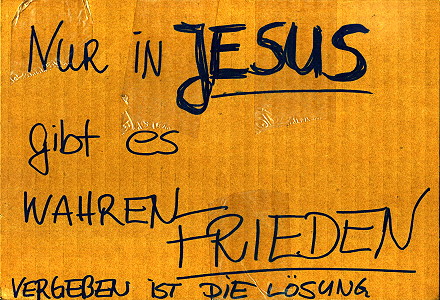 NUR IN JESUS
gibt es
WAHREN FRIEDEN
VERGEBEN IST DIE LÖSUNG